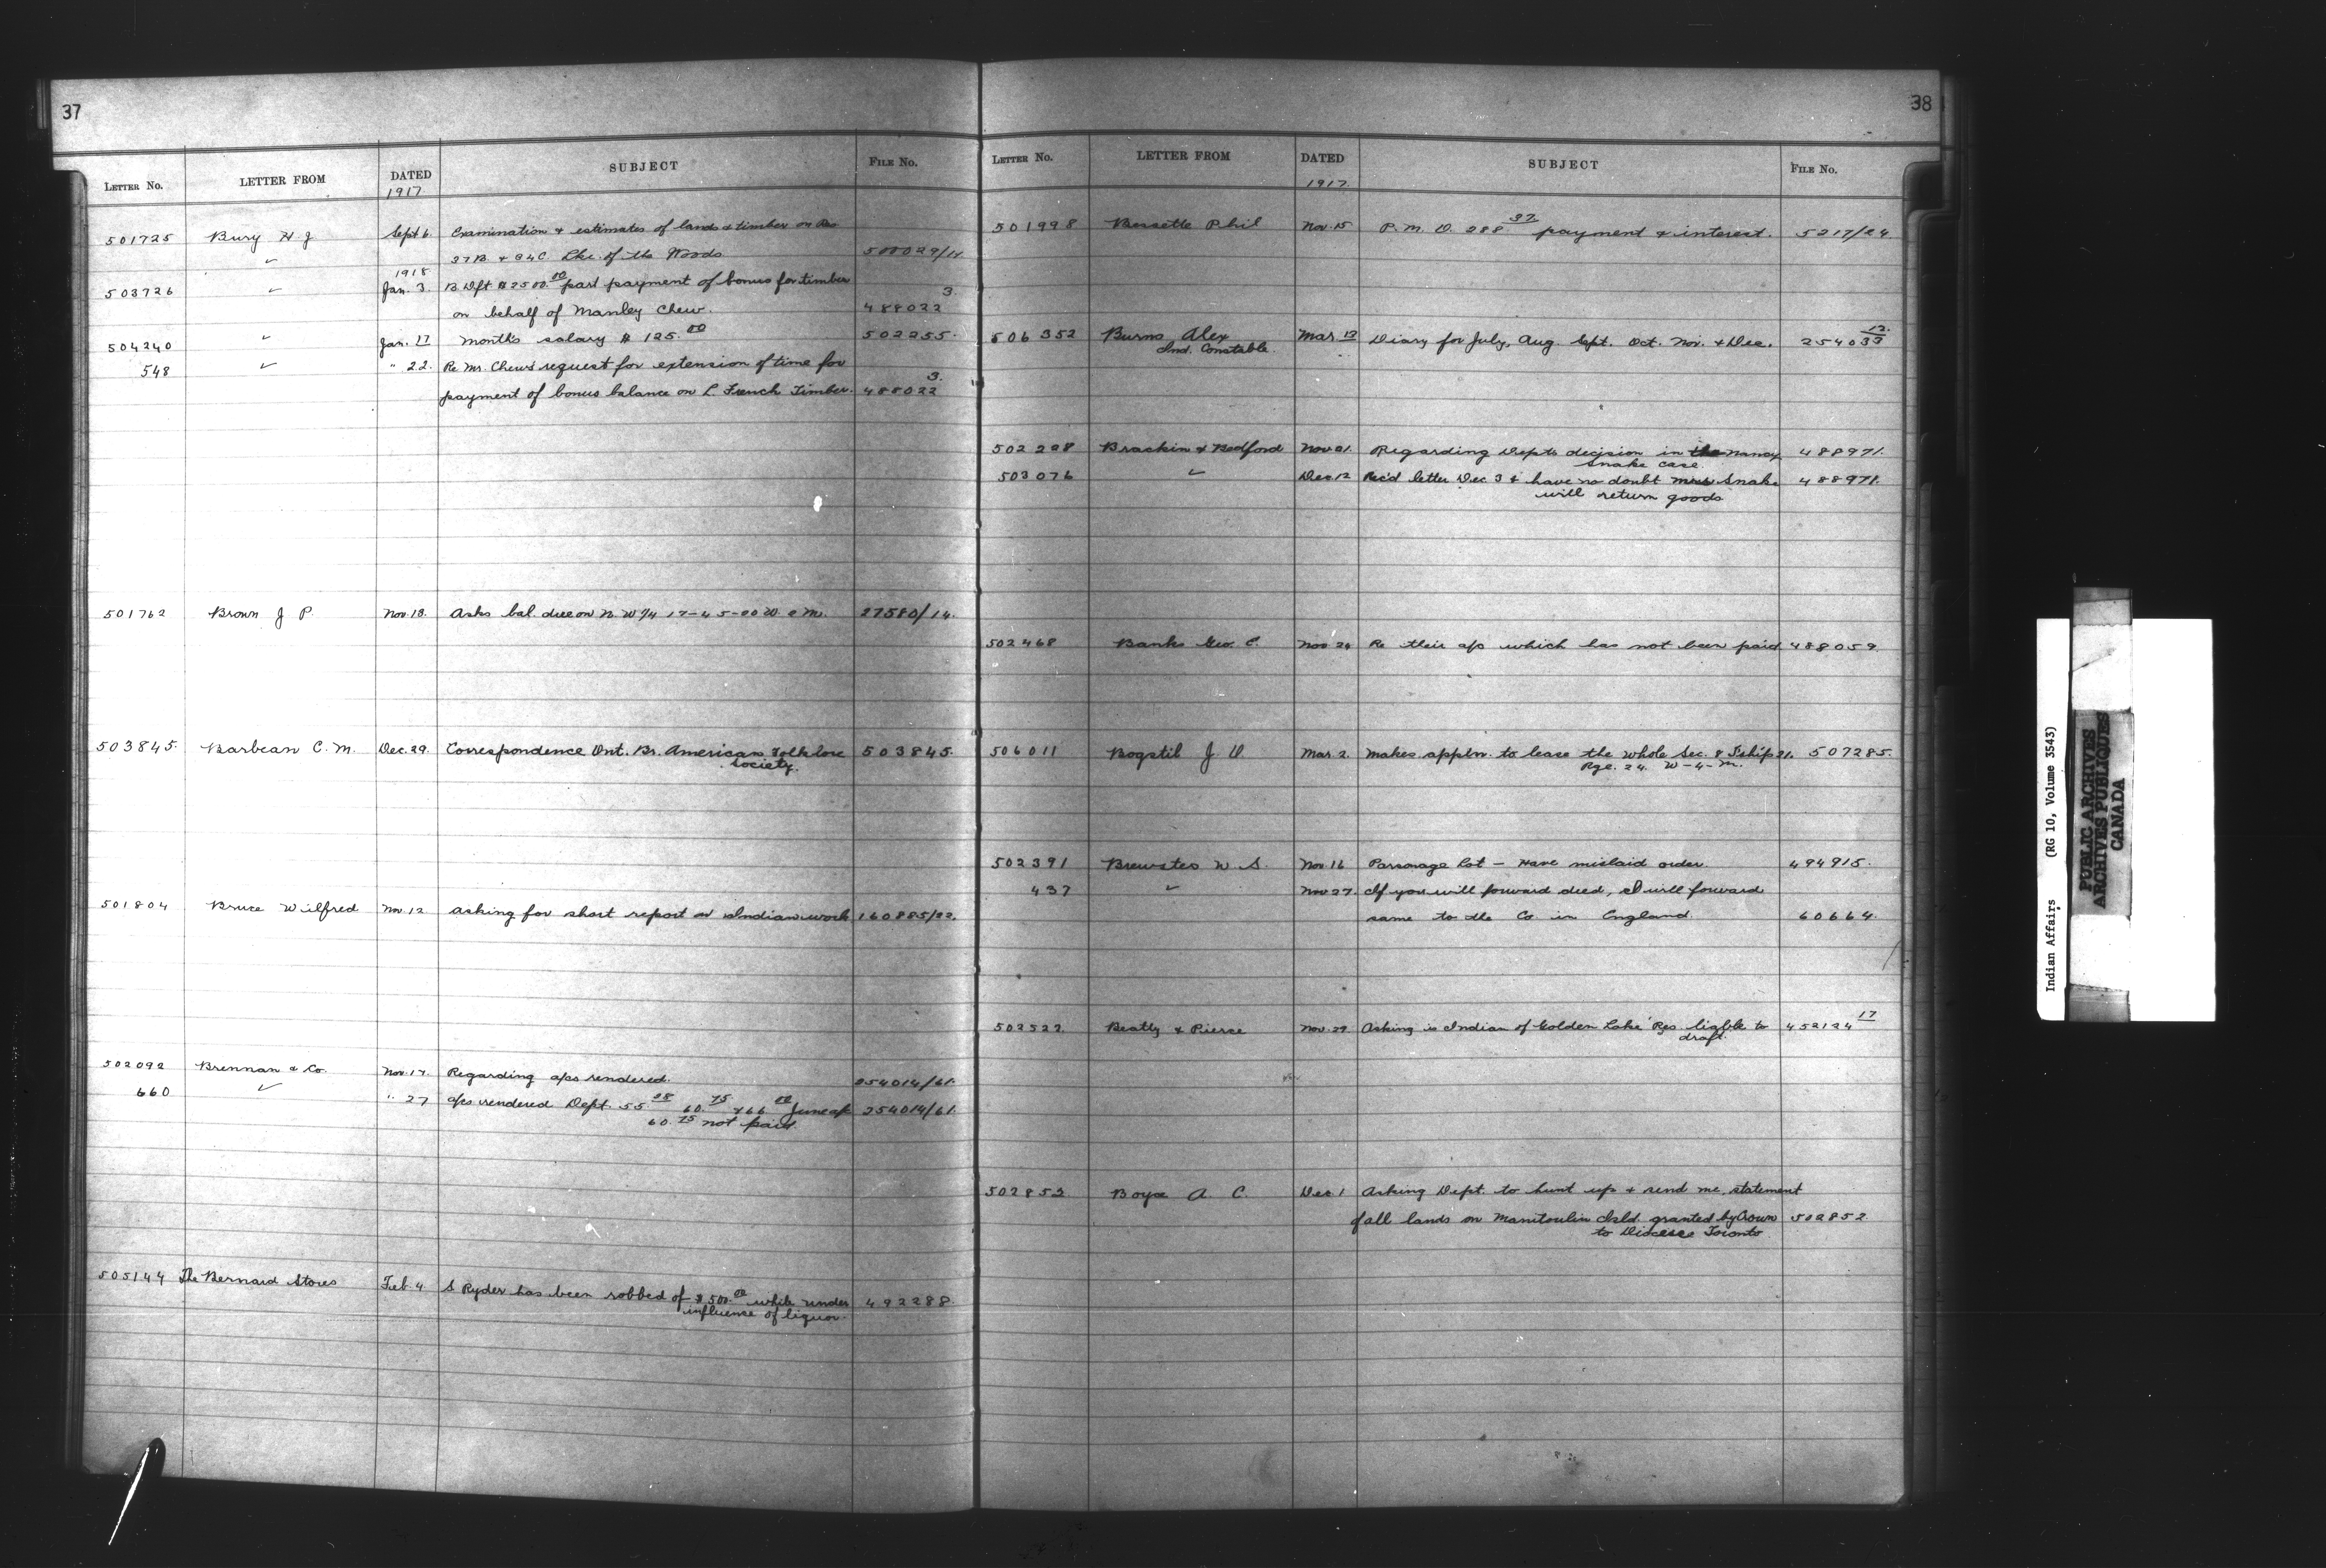 37
LETTER NO. LETTER FROM DATED SUBJECT FILE NO.
1917
501725 Bury H J Sept 6. Examination & estimates of lands & timber on Res
✓ 37B. & 34C Lke. of the Woods 500029/14
1918
503726 ✓ Jan. 3. B. Dft $2500.00 part payment of bonus for timber 3.
on behalf of Manley Chew. 488022
504240 ✓ Jan. 17 month's salary $125.00 502255.
548 ✓ " 22. Re Mr. Chew's request for extension of time for 3.
payment of bonus balance on L. French Timber. 488022
501762 Brown J P. Nov. 13. Asks bal. due on N. W 1/4 27580/14.
503845. Barbeau C. M. Dec. 29. Correspondence Ont. Br. American Folklore 503845.
Society.
501804 Bruce Wilfred Nov. 12 asking for short report on Indian work 160885/22.
502092 Brennan & Co. Nov. 17. Regarding a/cs rendered. 254014/61.
660 ✓ " 27 a/cs rendered Dept. 55.28 60.75 & 66.00 June a/c 254014/61.
60.75 not paid.
505144 The Bernard Stores Feb. 4. S Ryder has been robbed of $500.00 while under 492288.
influence of liquor.
38
LETTER NO. LETTER FROM DATED SUBJECT FILE NO.
1917.
501998 Bessette Phil Nov. 15 P. M. O. 288.37 payment & interest. 5217/24
506352 Burns Alex Mar. 12 Diary for July, Aug. Sept. Oct. Nov. & Dec. 254033 12.
Ind. Constable.
502208 Brackin & Bedford Nov 21. Regarding Dept's decision in the Nancy 488971.
Snake case.
503076 ✓ Dec 12 Rec'd letter Dec 3 & have no doubt Miss Snake 488971.
will return goods
502468 Banks Geo. C. Nov 24 Re their a/c which has not been paid 488059.
506011 Bogstil J O Mar. 2. makes appln. to lease the whole Sec. 8 Tship 21. 507285.
Rge. 24. W-4-M.
502391 Brewster W S. Nov. 16 Parsonage Lot — Have mislaid order. 494915.
437 ✓ Nov 27. If you will forward deed, I will forward
same to the Co in England. 60664.
502522 Beatty & Pierce Nov. 29 Asking is Indian of Golden Lake Res. liable to 452124 17
draft.
502852 Boyce A C. Dec. 1 Asking Dept. to hunt up & send me statement
of all lands on Manitoulin Isld. granted by Crown 502852.
to Diocese Toronto
Indian Affairs (RG 10, Volume 3543)
PUBLIC ARCHIVES
ARCHIVES PUBLIQUES
CANADA